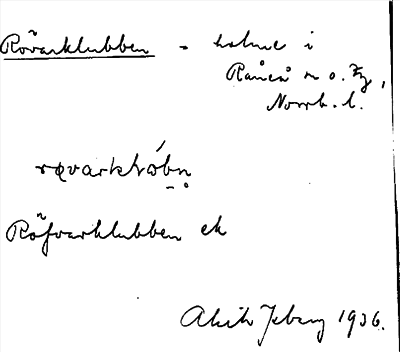 Rövarklubben - holme i
Råneå sn o. Fg,
Norrb. l.
rœvarklωbn̥
Röfvarklubben ek
1936.